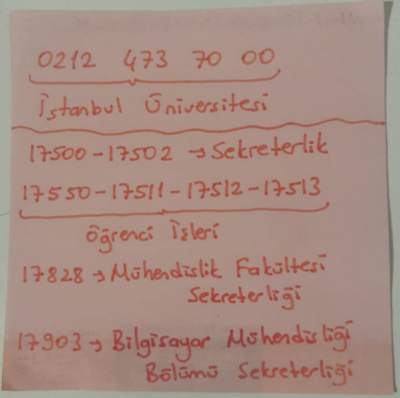 0212 473 70 00
İstanbul Üniversitesi
17500-17502 → Sekreterlik
17550-17511-17512-17513
Öğrenci İşleri
17828 → Mühendislik Fakültesi
Sekreterliği
17903 → Bilgisayar Mühendisliği
Bölümü Sekreterliği